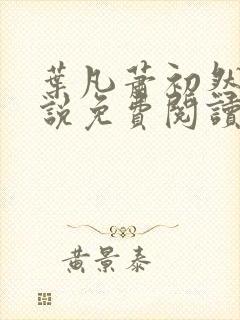 葉凡蕭初然
說免費閱讀
黃景泰